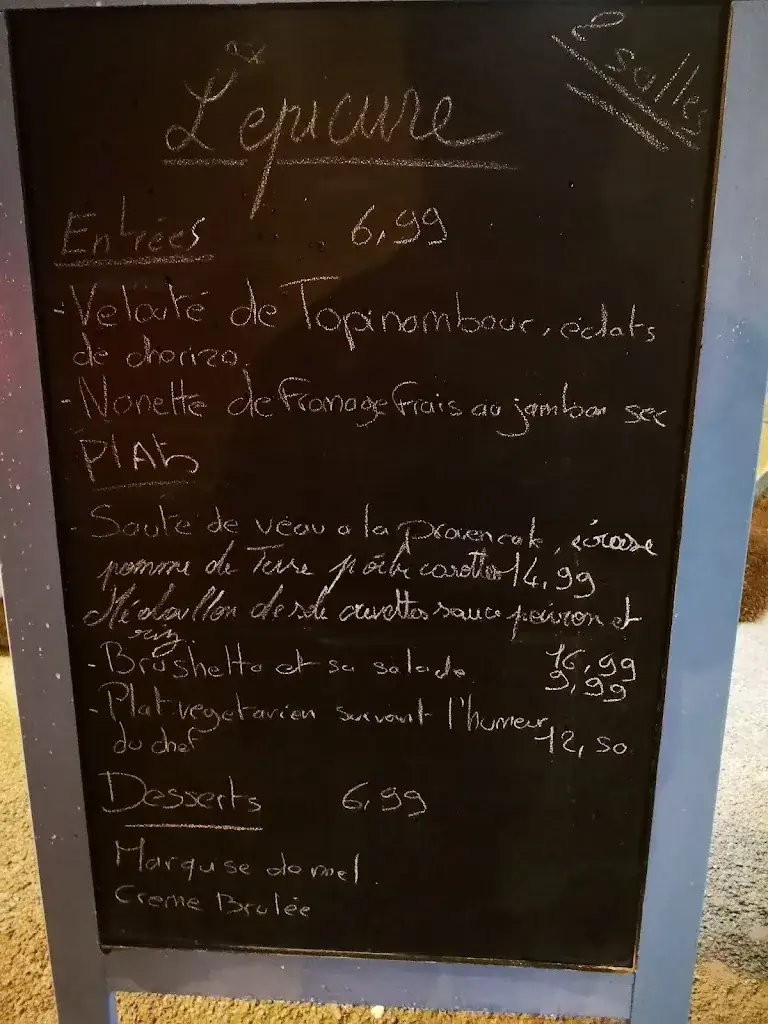 2 salles
L'epicure
Entrées 6,99
- Velouté de Topinambour, éclats
de chorizo.
- Nonette de Fromage frais au jambon sec
PlAts
- Sauté de veau a la provençale, écrasé
pomme de Terre poêlée carottes 14,99
Médaillon de sole crevettes sauce poivron et
riz 16,99
- Brushetta et sa salade 9,99
- Plat vegetarien suivant l'humeur
du chef 12,50
Desserts 6,99
Marquse de miel
Creme Brulée